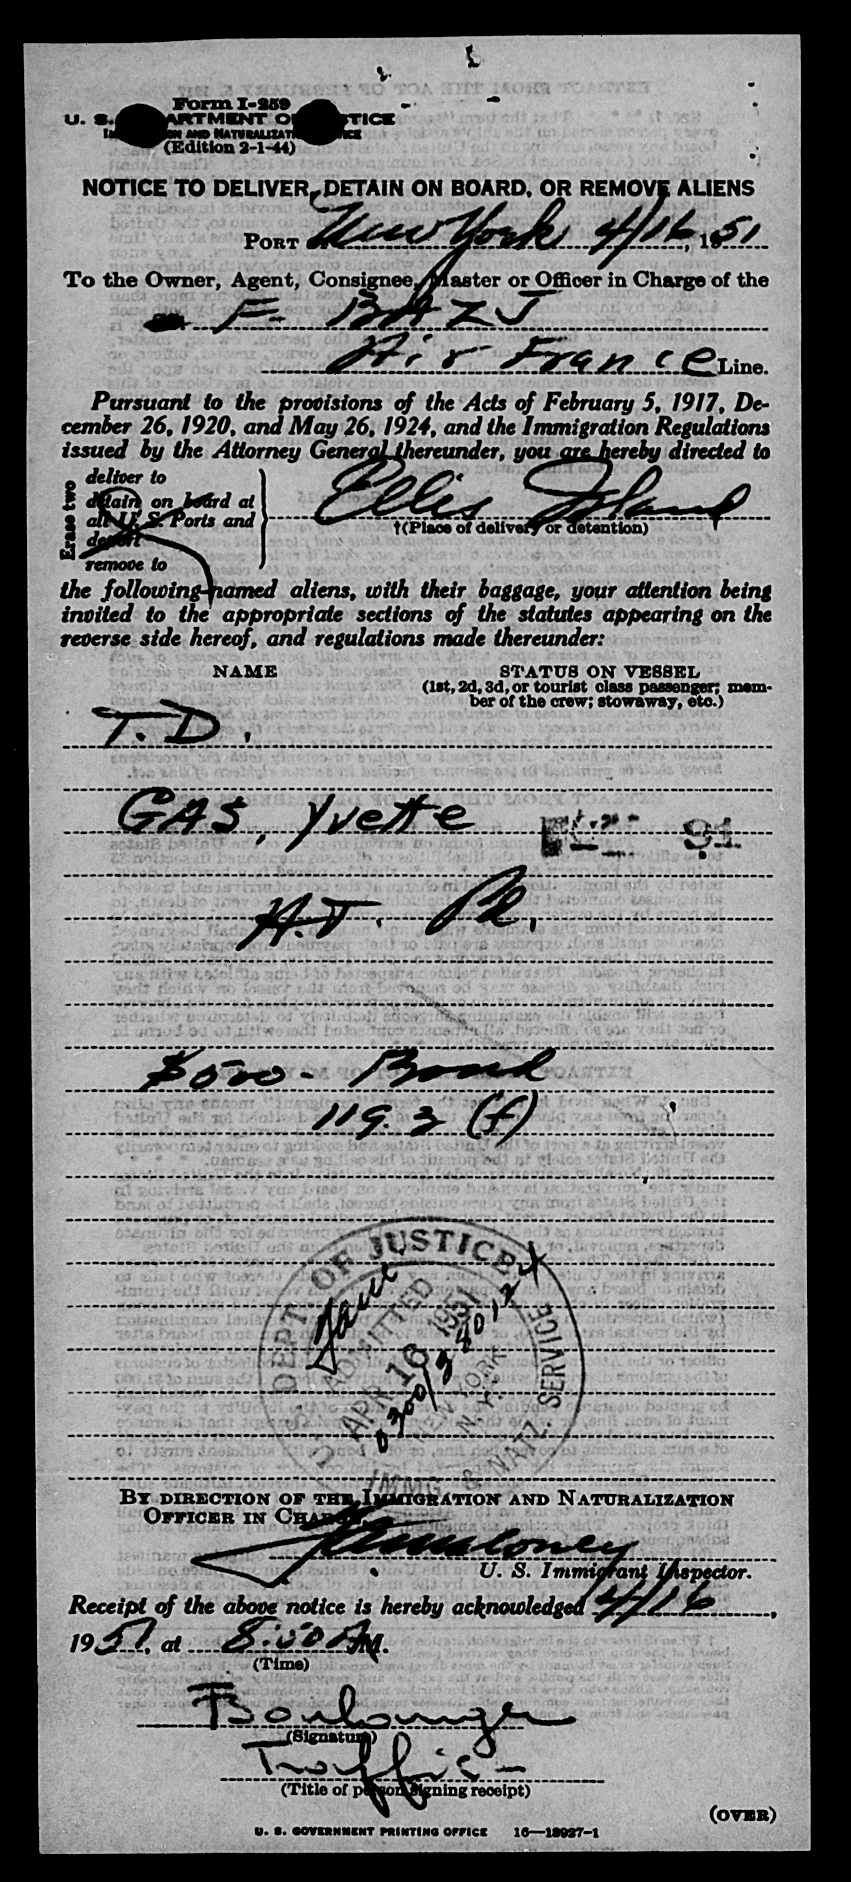 Form I-259
U. S. DEPARTMENT OF JUSTICE
IMMIGRATION AND NATURALIZATION SERVICE
(Edition 2-1-44)
NOTICE TO DELIVER, DETAIN ON BOARD, OR REMOVE ALIENS
PORT of New York 4/16, 1951
To the Owner, Agent, Consignee, Master or Officer in Charge of the
F-BAZJ
Air France Line.
Pursuant to the provisions of the Acts of February 5, 1917, De-
cember 26, 1920, and May 26, 1924, and the Immigration Regulations
issued by the Attorney General thereunder, you are hereby directed to
Erase two
deliver to
detain on board at
all U. S. Ports and
deport
remove to
Ellis Island
†(Place of delivery or detention)
the following-named aliens, with their baggage, your attention being
invited to the appropriate sections of the statutes appearing on the
reverse side hereof, and regulations made thereunder:
NAME STATUS ON VESSEL
(1st, 2d, 3d, or tourist class passenger; mem-
ber of the crew; stowaway, etc.)
T. D.
GAS, Yvette
91
$500- Bond
119.3 (f)
U.S. DEPT. OF JUSTICE
ADMITTED
APR 16 1951
NEW YORK
N.Y.
0300/
IMMG. & NATZ. SERVICE
BY DIRECTION OF THE IMMIGRATION AND NATURALIZATION
OFFICER IN CHARGE,
U. S. Immigrant Inspector.
Receipt of the above notice is hereby acknowledged 4/16,
1951, at 8:50 AM.
(Time)
Boulanger
(Signature)
Traffic-
(Title of person signing receipt)
(OVER)
U. S. GOVERNMENT PRINTING OFFICE 16—18927-1